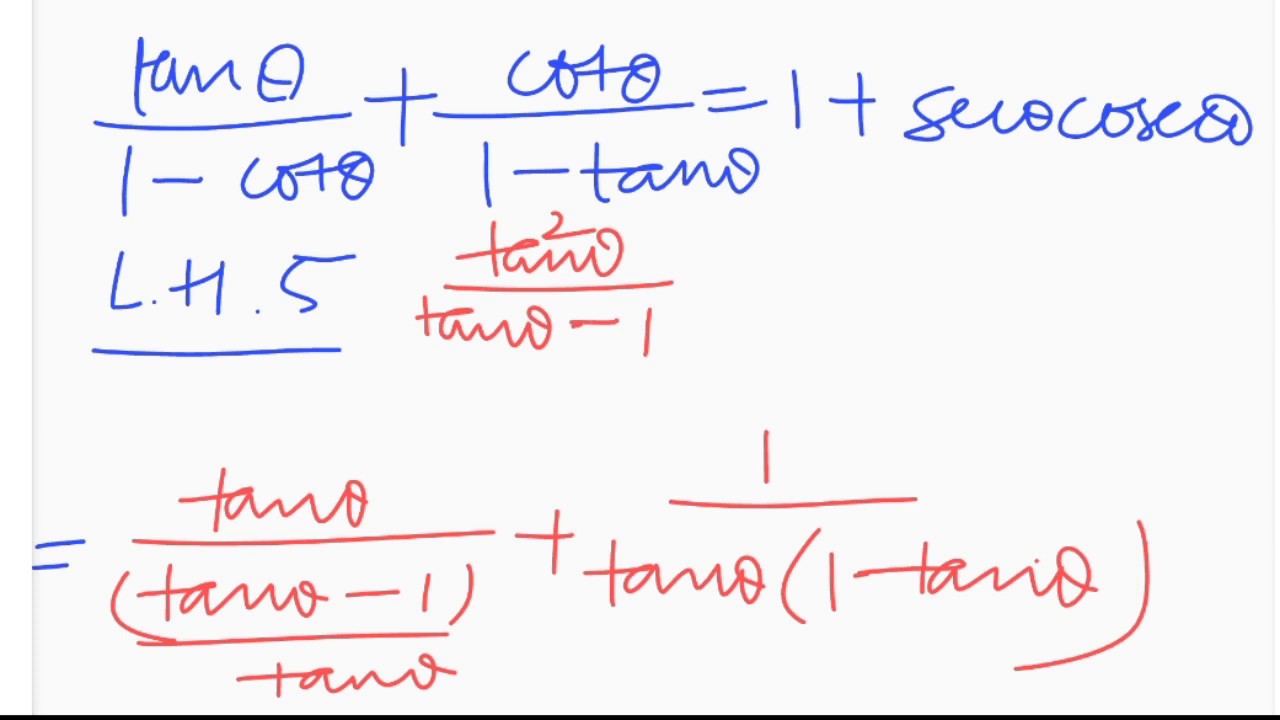 tanθ/(1 - cotθ) + cotθ/(1 - tanθ) = 1 + secθcosecθ
L.H.S tan²θ/(tanθ - 1)
= tanθ/((tanθ - 1)/tanθ) + 1/(tanθ(1 - tanθ))